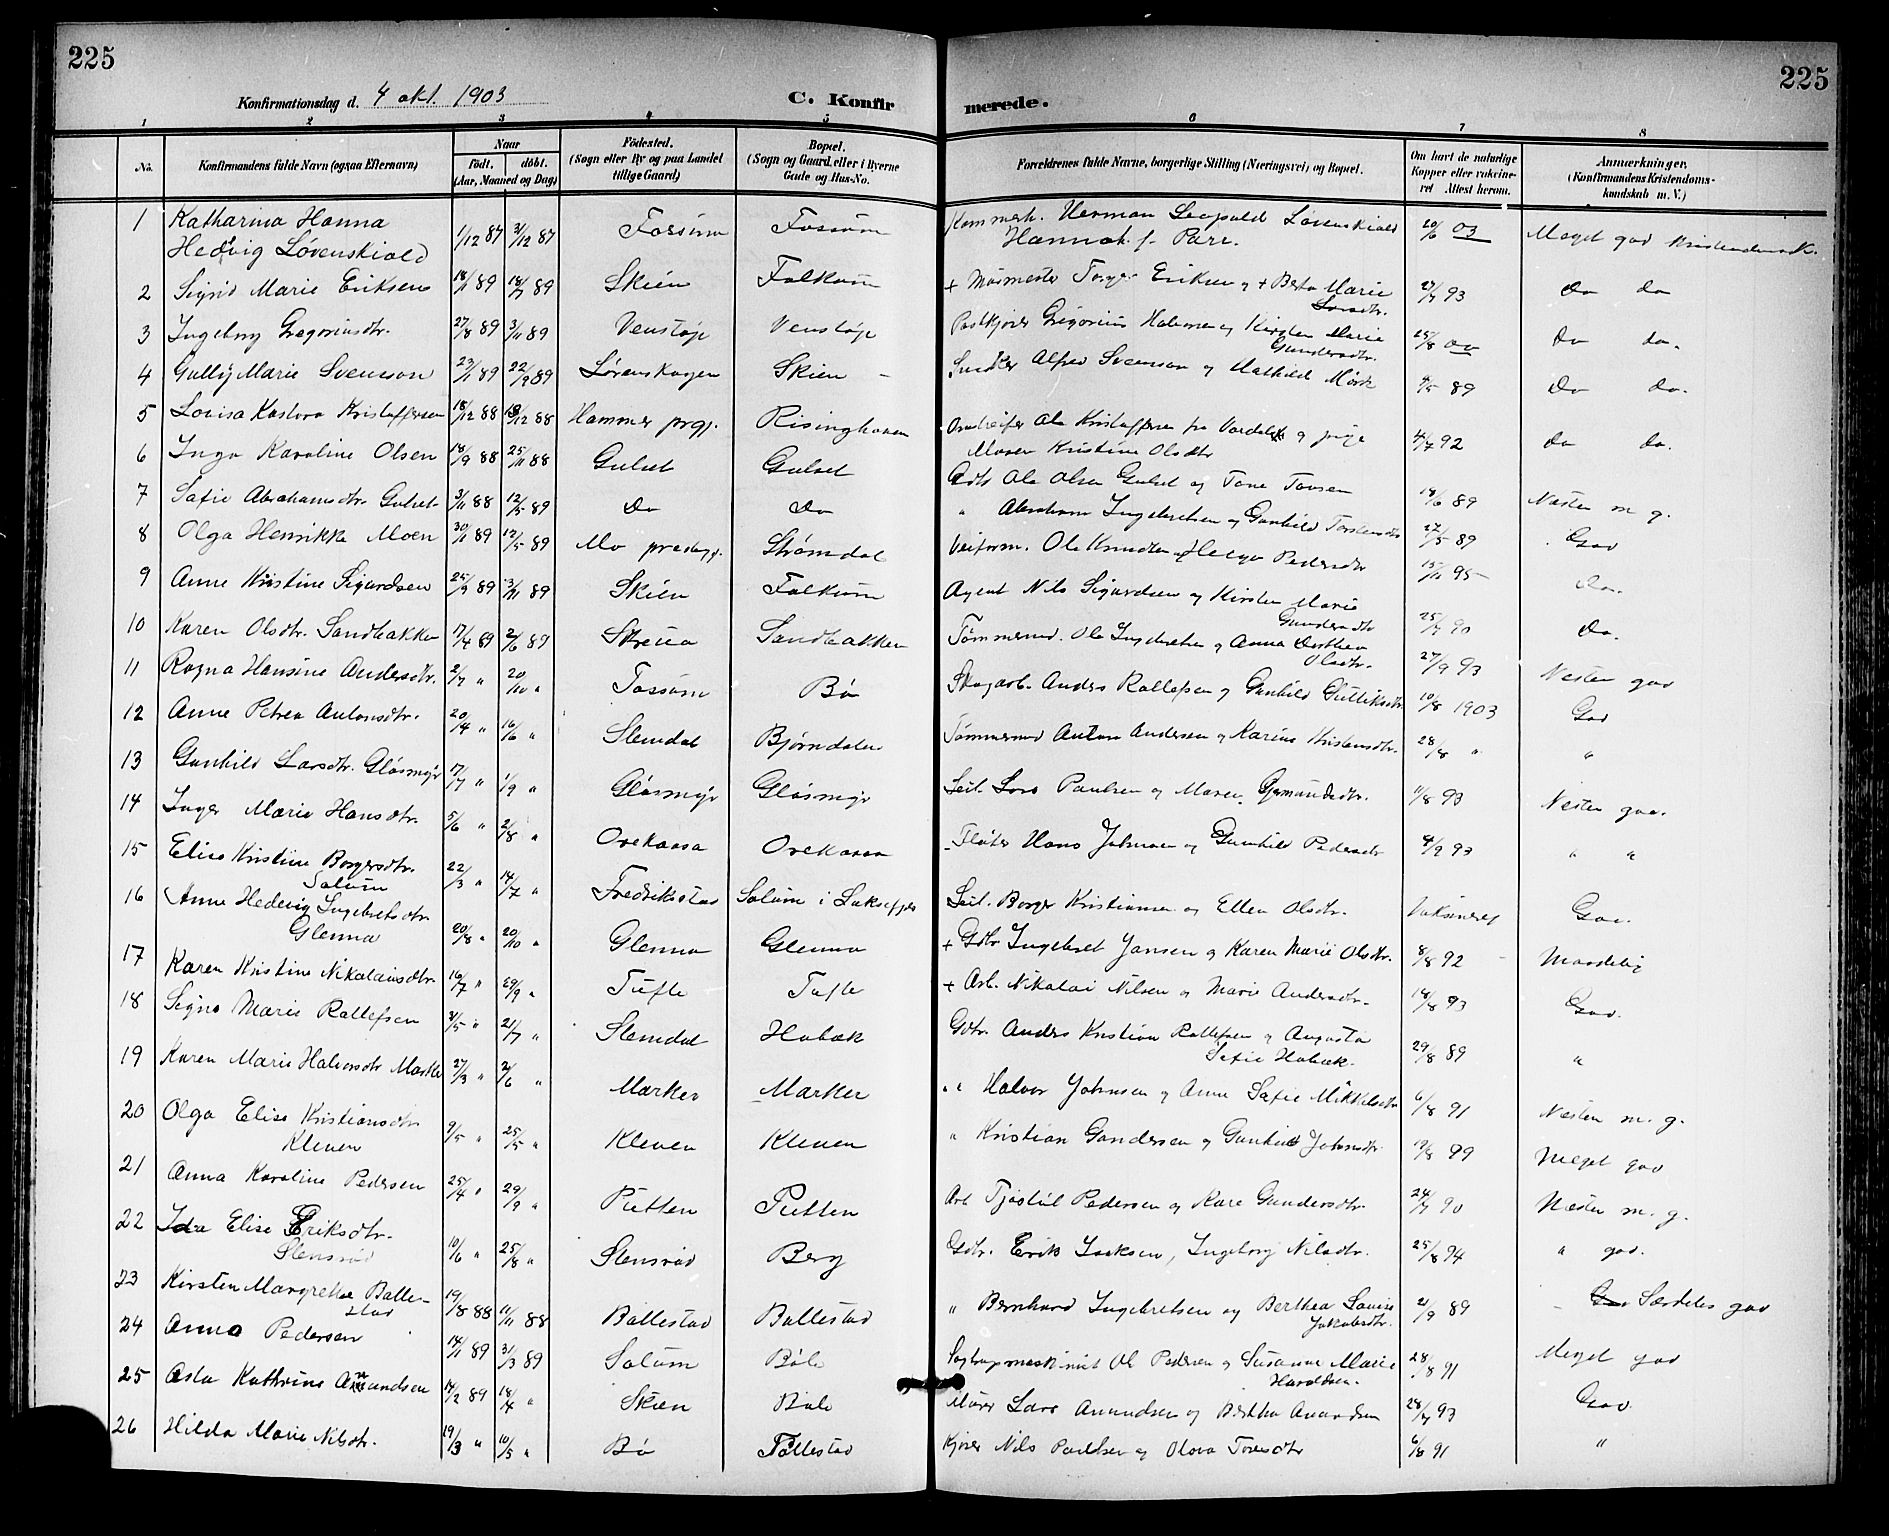 225
225
Konfirmationsdag d. 4 okt. 1903
C. Konfir
merede.
1 2 3 4 5 6 7 8
No.
Konfirmandens fulde Navn (ogsaa Efternavn)
Naar
født. døbt.
(Aar, Maaned og Dag)
Fødested.
(Sogn eller By og paa Landet
tillige Gaard)
Bopæl.
(Sogn og Gaard, eller i Byerne
Gade og Hus-No.
Forældrenes fulde Navne, borgerlige Stilling (Næringsvei) og Bopæl.
Om havt de naturlige
Kopper eller vakcine-
ret. Attest herom.
Anmerkninger.
(Konfirmandens Kristendoms-
kundskab m. V.)
1 Katharina Hanna
Hedvig Løvenskiold 1/12 87 31/12 87 Fossum Fossum Kammerh. Herman Leopold Løvenskiold
Hannah f. Parr. 20/6 03 Meget god Kristendomsk.
2 Sigrid Marie Eriksen 18/1 89 18/7 89 Skien Falkum + Murmester Eriksen og + Berta Marie
Larsdtr. 27/7 93 do do
3 Ingeborg Gregoriusdtr. 27/8 89 3/11 89 Venstøp Venstøp Postkjører Gregorius Halvorsen og Kirsten Marie
Gundersdtr. 25/8 00 Do do.
4 Gully Marie Svensson 23/1 89 22/9 89 Lørenskogen Skien Snedker Alfred Svensson og Mathild Mørk 9/5 89 Do do.
5 Lovisa Kristoffersen 18/12 88 12 88 Hammer prgj. Risinghaven Ola Kristoffersen fra Værdalen og pige
Maren Kristine Olsdtr 4/7 92 do do.
6 Inga Karoline Olsen 18/9 88 25/11 88 Gulset Gulset Gdbr Ole Olsen Gulset og Tone 18/6 89 Næsten m g.
7 Safie Abrahamsdtr Gulset 3/11 88 12/5 89 Do Do " Abraham Ingebretsen og Gunhild Torstensdtr 22/5 89 God
8 Olga Henrikke Moen 30/1 89 12/5 89 Mo prestegj. Strømdal Veiform. Ole Knudsen og Helga Pedersdtr 15/11 95 Do.
9 Anne Kristine Sigurdsen 25/9 89 3/11 89 Skien Falkum Agent Nils Sigurdsen og Kirsten Marie
Gundersdtr 25/7 90 Do.
10 Karen Olsdtr. Sandbakken 17/4 89 2/6 89 Sandbakken Tømmermd. Ole Ingebretsen og Anna Dorthea
Olsdtr. 27/9 93 Næsten god
11 Ragna Hansine Andersdtr. 2/7 " 20/10 " Fossum Bø Skogarb. Anders Rollefsen og Gunhild Gulliksdtr 10/8 1903 God
12 Anne Petrea Antonsdtr. 20/4 " 16/6 " Slemdal Bjørndalen Tømmermd Anton Andersen og Karine Kristensdtr. 28/8 " "
13 Gunhild Larsdtr. Glåsmyr 17/7 " 1/9 " Glåsmyr Glåsmyr Seil. Lars Paulsen og Maren Gjermundsdtr. 11/8 93 Næsten god.
14 Inger Marie Hansdtr. 5/6 " 2/8 " Orekaasa Orekaasa Fløter Hans Johnsen og Gunhild Pedersdtr 9/9 93 " "
15 Elise Kristine Borgersdtr.
Solum 22/3 " 14/7 " Fredrikstad Solum i Luksefjel Seil. Borger Kristiansen og Ellen Olsdtr. Vaksineret God.
16 Anne Hedevig Ingebretsdtr
Glenna 20/8 " 20/10 " Glenna Glenna + Gdbr Ingebret Jansen og Karen Marie Olsdtr. 8/8 92 Maadelig
17 Karen Kristine Nikolaisdtr. 16/7 " 29/9 " Tufte Tufte + Arb. Nikolai Nilsen og Marie Andersdtr. 14/8 93 God.
18 Signe Marie Rollefsen 31/5 " 21/7 " Slemdal Hobæk Gdbr. Anders Kristian Rollefsen og Augusta
Safie Hobæk. 29/8 89 "
19 Karen Marie Halvorsdtr Marker 27/3 " 2/6 " Marker Marker " Halvor Johnsen og Anne Safie Mikkelsdtr 6/8 91 Næsten m. g.
20 Olga Elise Kristiansdtr
Kleven 9/5 " 25/5 " Kleven Kleven " Kristian Gundersen og Gunhild Johnsdtr. 19/8 99 Meget god
21 Anna Karoline Pedersen 25/4 " 29/9 " Pütten Pütten Arb Tjøstul Pedersen og Kare Gundersdtr. 24/7 90 Næsten m. g.
22 Ida Elise Eriksdtr.
Stensrød 10/6 " 25/8 " Stensrød Berg Gdbr. Erik Isaksen, Ingeborg Nilsdtr. 25/8 94 " god.
23 Kirsten Margrethe Balle-
stad 19/8 88 11/11 88 Ballestad Ballestad " Bernhard Ingebretsen og Berthea Lovise
Jakobsdtr. 21/9 89 Særdeles god
24 Anna Pedersen 14/1 89 31/3 89 Solum Bøle Ol Pedersen og Susanne Marie
Haraldsen. 28/8 91 Meget god
25 Asta Kathrine Amundsen 14/2 89 18/4 " Skien Bøle Murer Lars Amundsen og Berthe Amundsen 28/7 93 God
26 Hilda Marie Nilsdtr. 19/3 " 10/5 " Bø Follestad Kjører Nils Paulsen og Olava Toresdtr 6/8 91 "